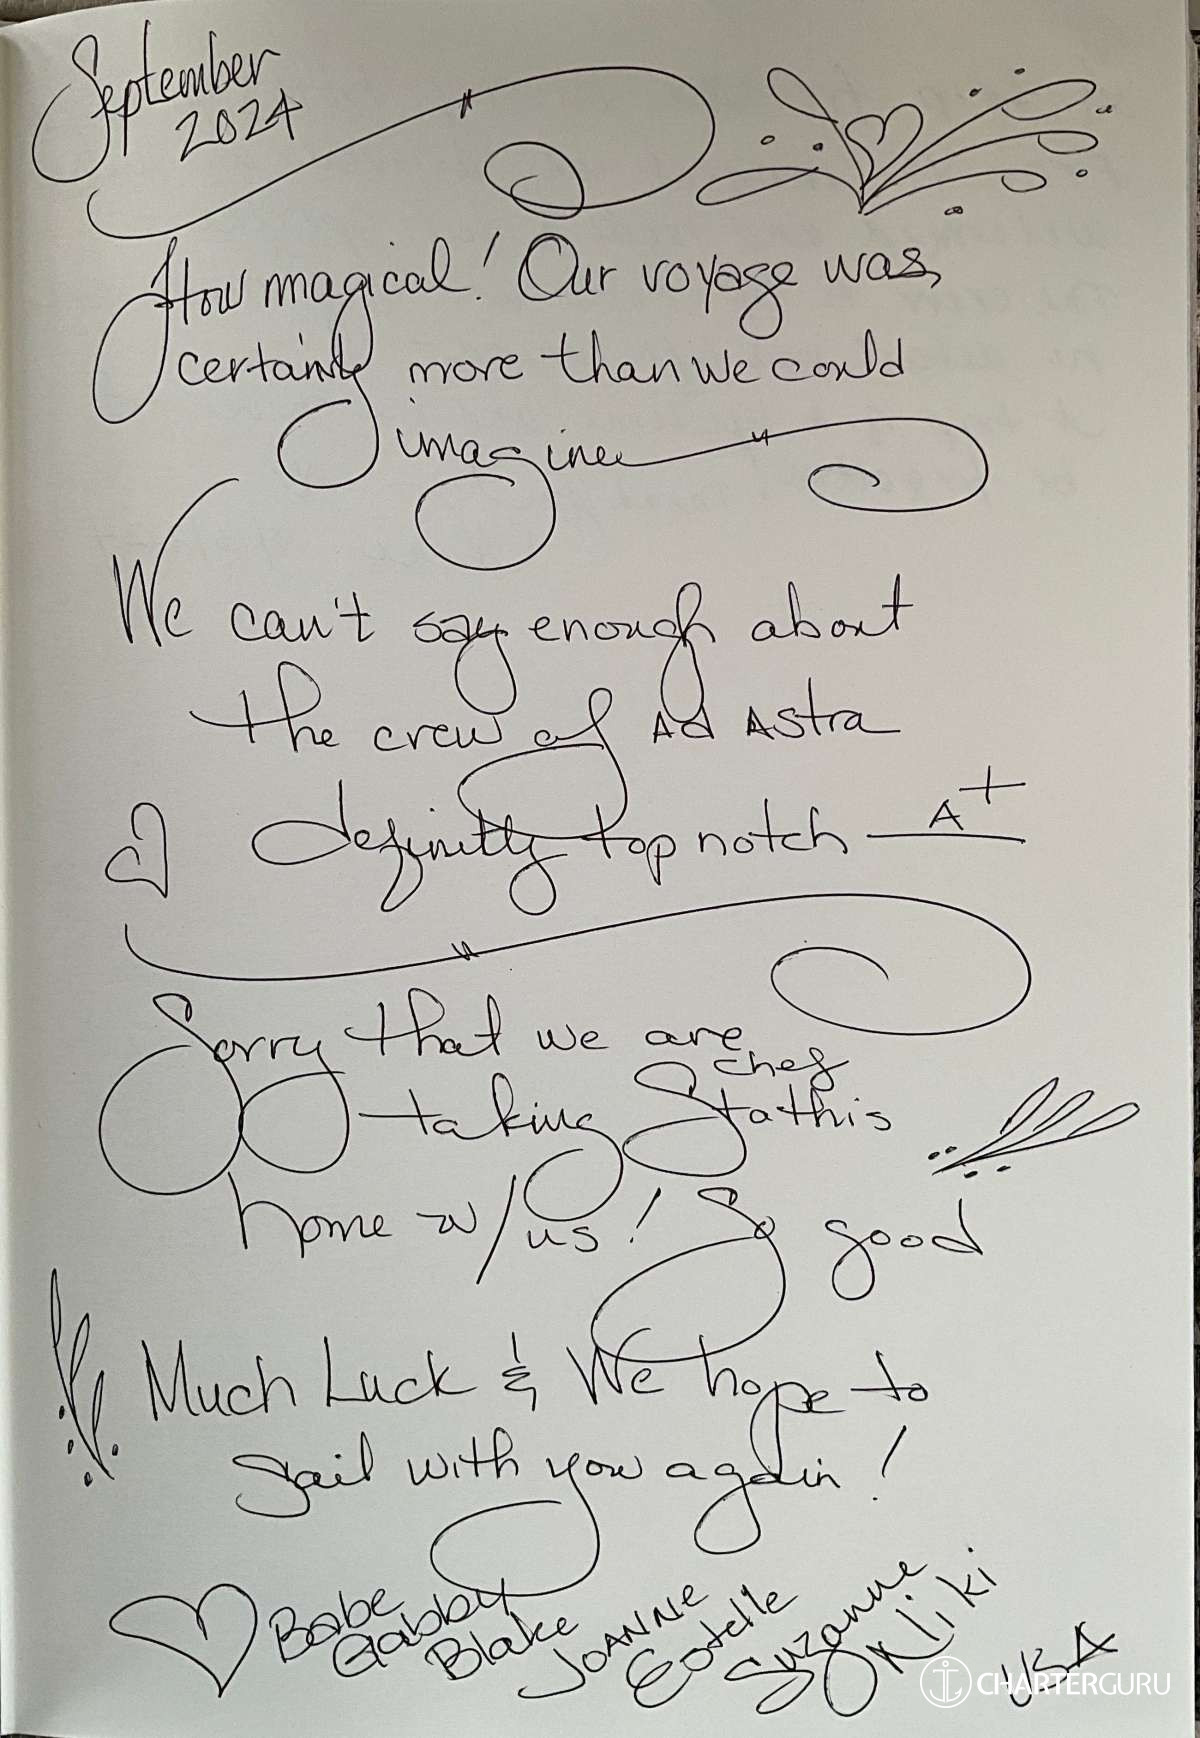 September
2024
How magical! Our voyage was,
certainly more than we could
imagine
We can't say enough about
the crew of Ad Astra
definitly top notch A+
Sorry that we are
taking chef Stathis
home w/us! So good
Much Luck & We hope to
sail with you again!
Babe
Gabby
Blake
JOANNE
Estelle
Suzanne
Niki
USA
CHARTERGURU